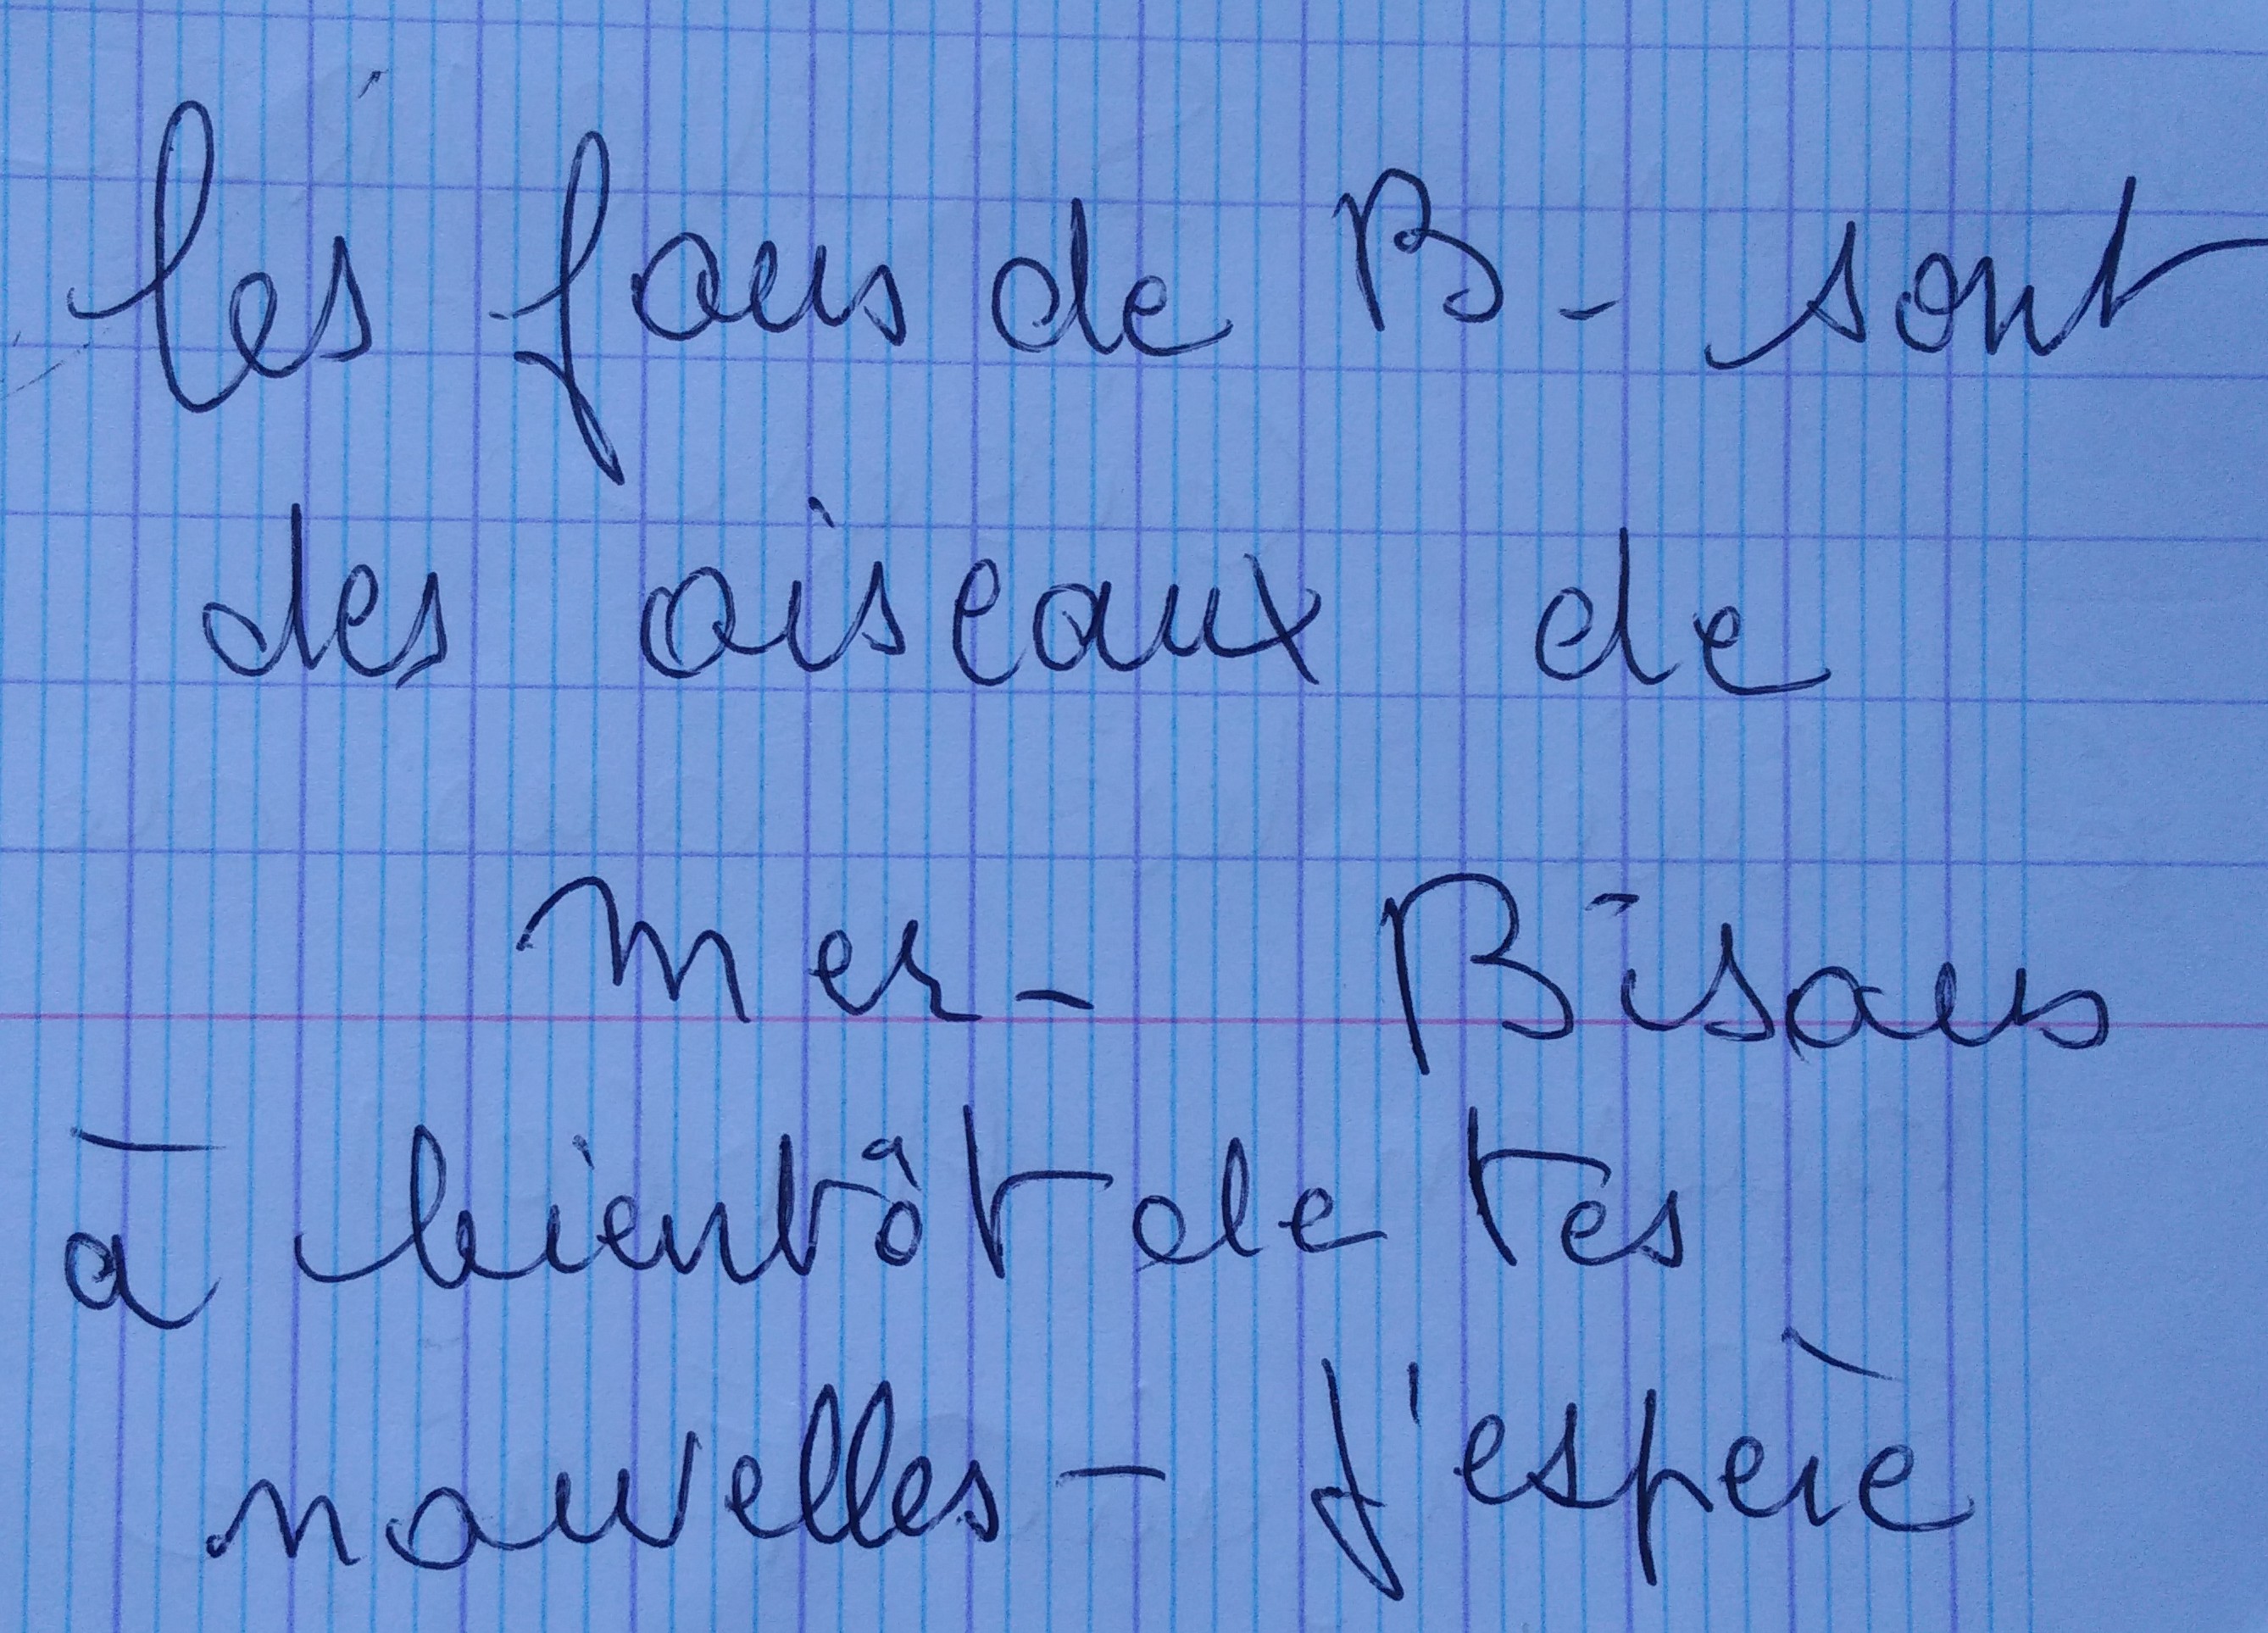 les fous de B- sont
des oiseaux de
mer- Bisous
à bientôt de tes
nouvelles - j'espère